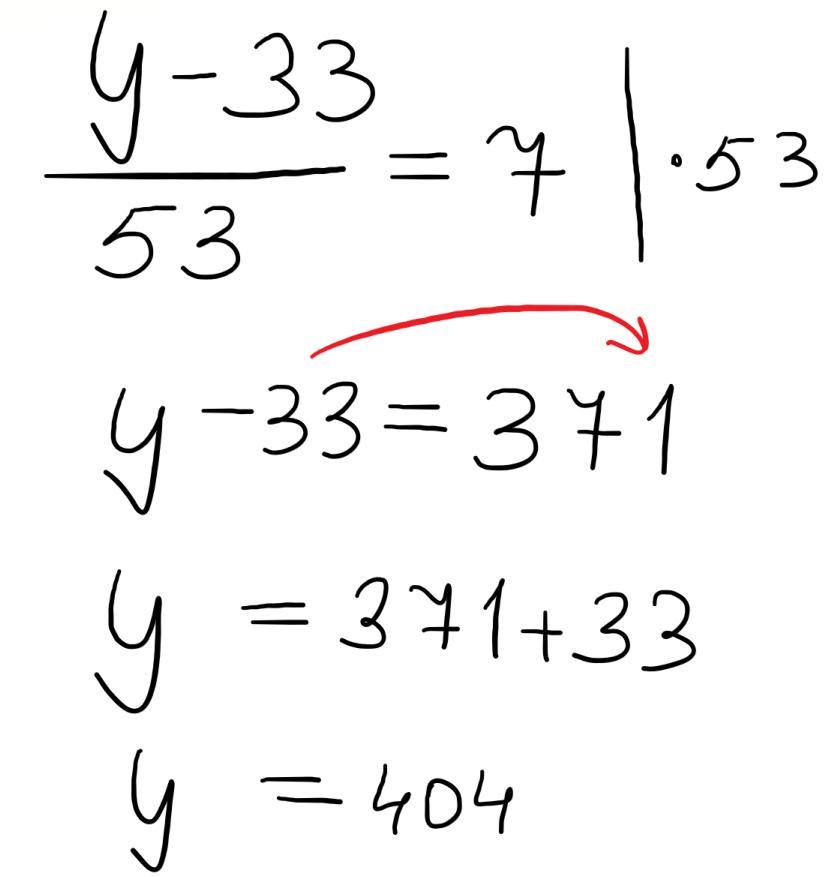 y-33
53 = 7 | ·53
y-33=371
y = 371+33
y = 404